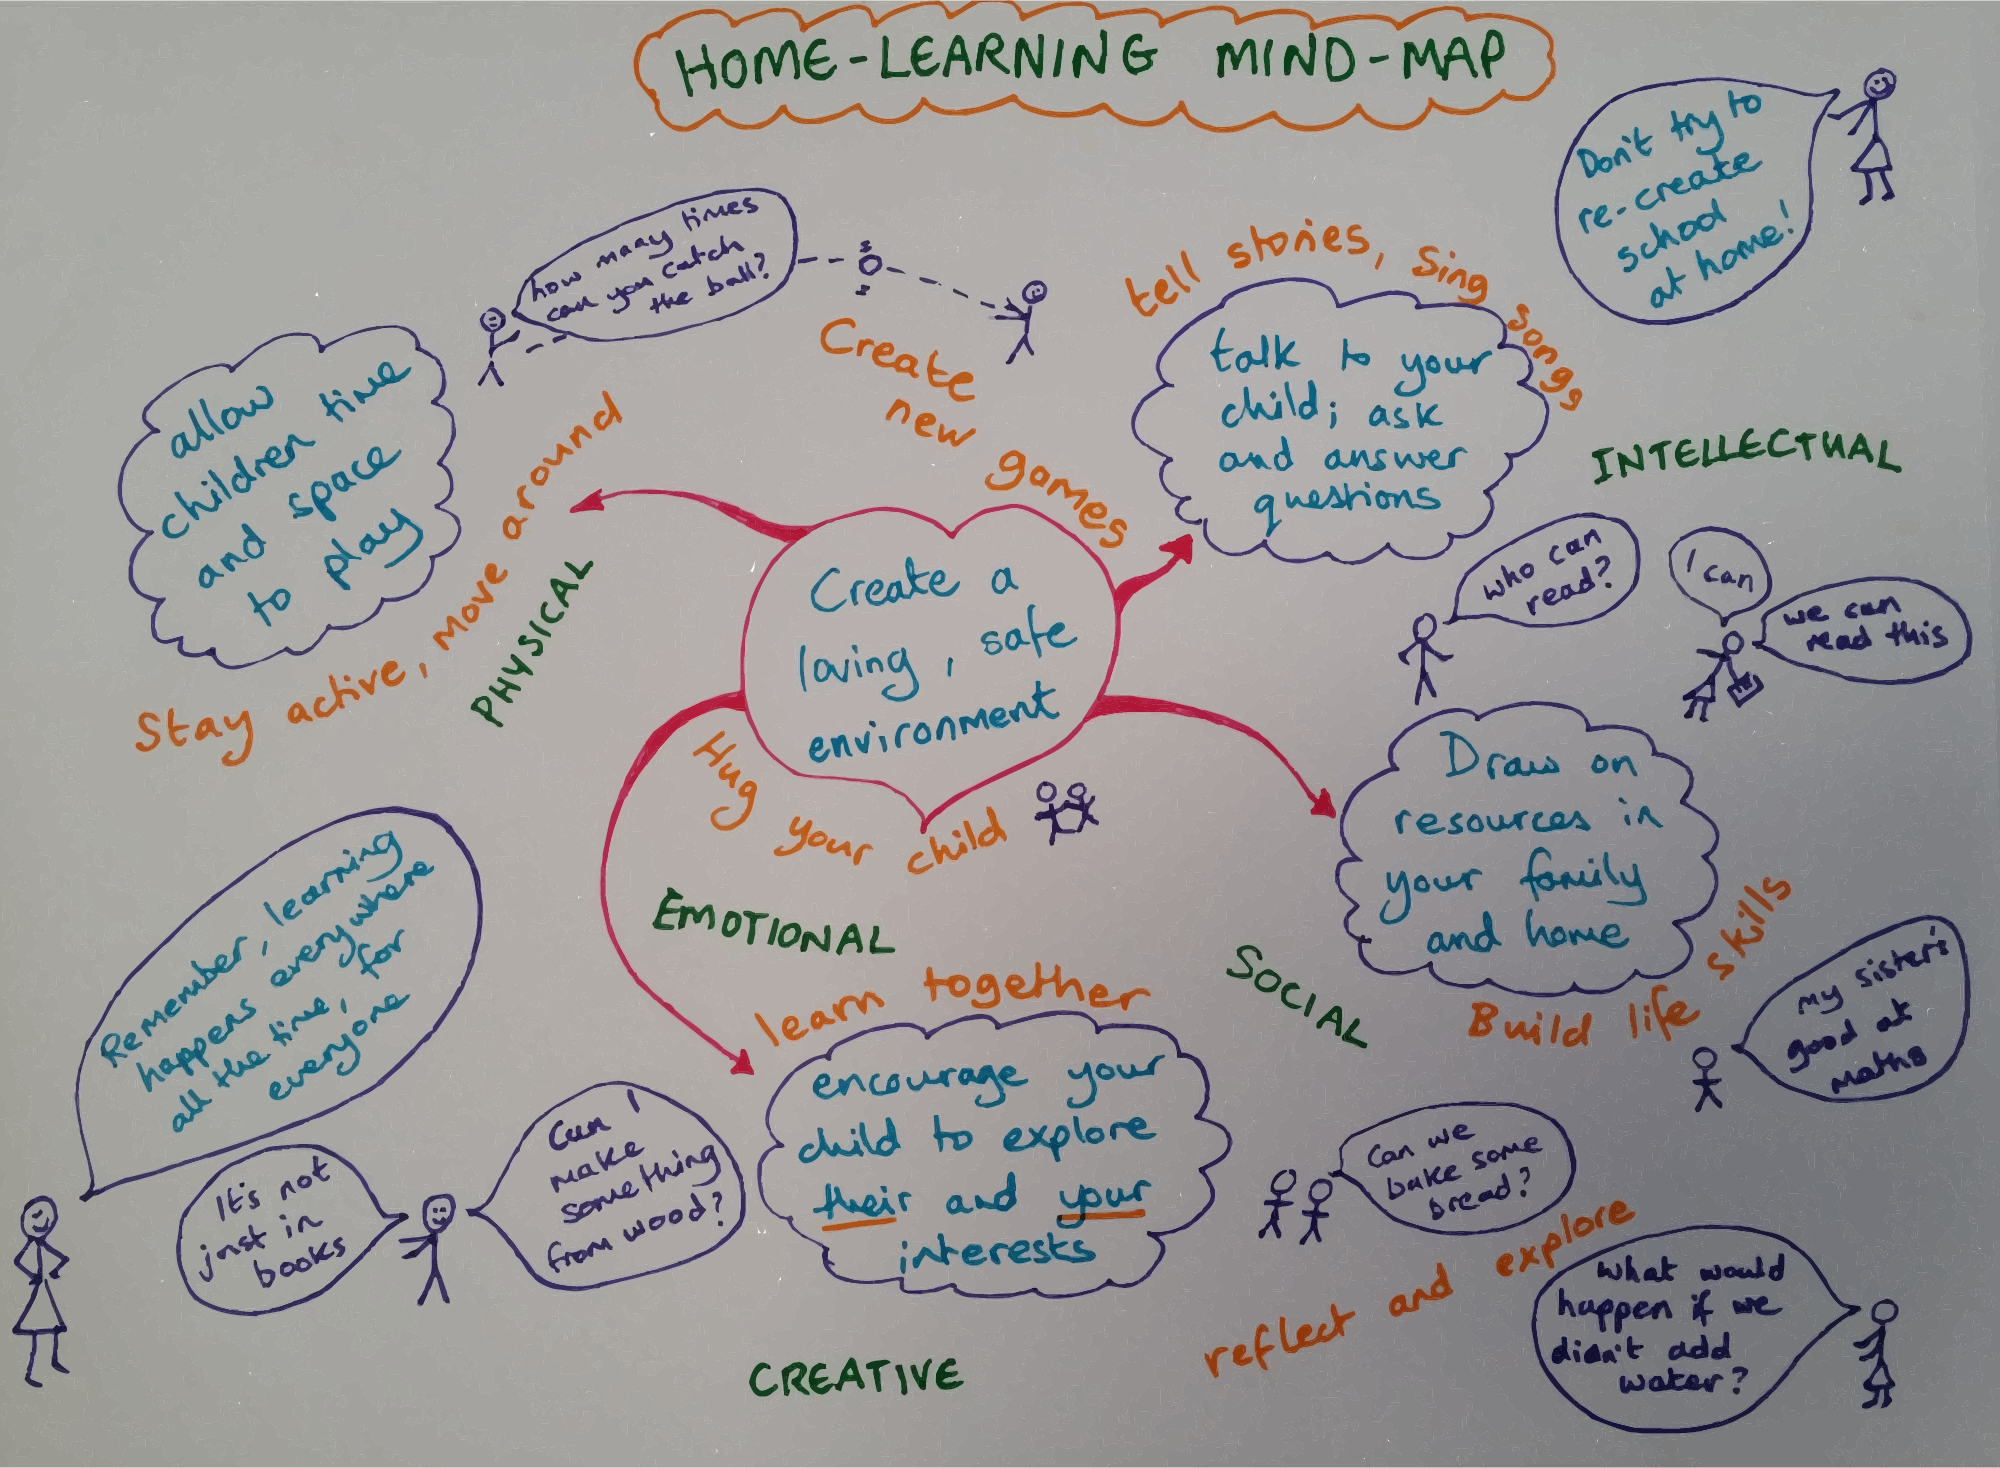 HOME-LEARNING MIND-MAP
Don't try to
re-create
school
at home!
how many times
can you catch
the ball?
Create
new
games
tell stories, Sing songs
talk to your
child; ask
and answer
questions
INTELLECTUAL
allow
children time
and space
to play
Stay active, move around
PHYSICAL
Create a
loving, safe
environment
who can
read?
I can
we can
read this
Draw on
resources in
your family
and home
Hug your child
EMOTIONAL
SOCIAL
Build life skills
my sister's
good at
maths
Remember, learning
happens everywhere
all the time, for
everyone
It's not
just in
books
Can I
make
something
from wood?
learn together
encourage your
child to explore
their and your
interests
Can we
bake some
bread?
reflect and explore
What would
happen if we
didn't add
water?
CREATIVE